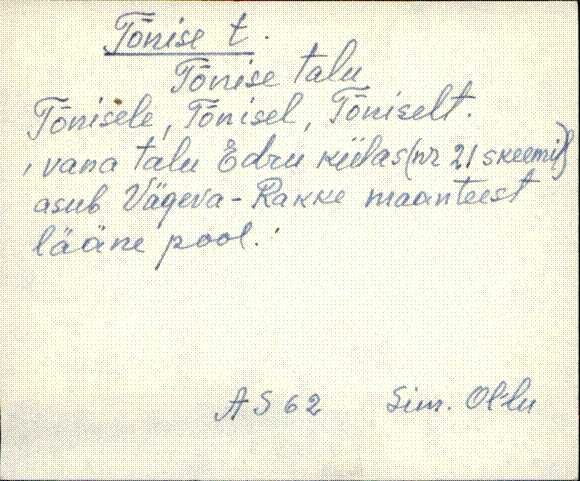 Tõnise t.
Tõnise talu
Tõnisele, Tõnisel, Tõniselt.
, vana talu Edru külas (nr 21 skeemil)
asub Vägeva-Rakke maanteest
lääne pool.
AS 62 Sim. Ol'lu